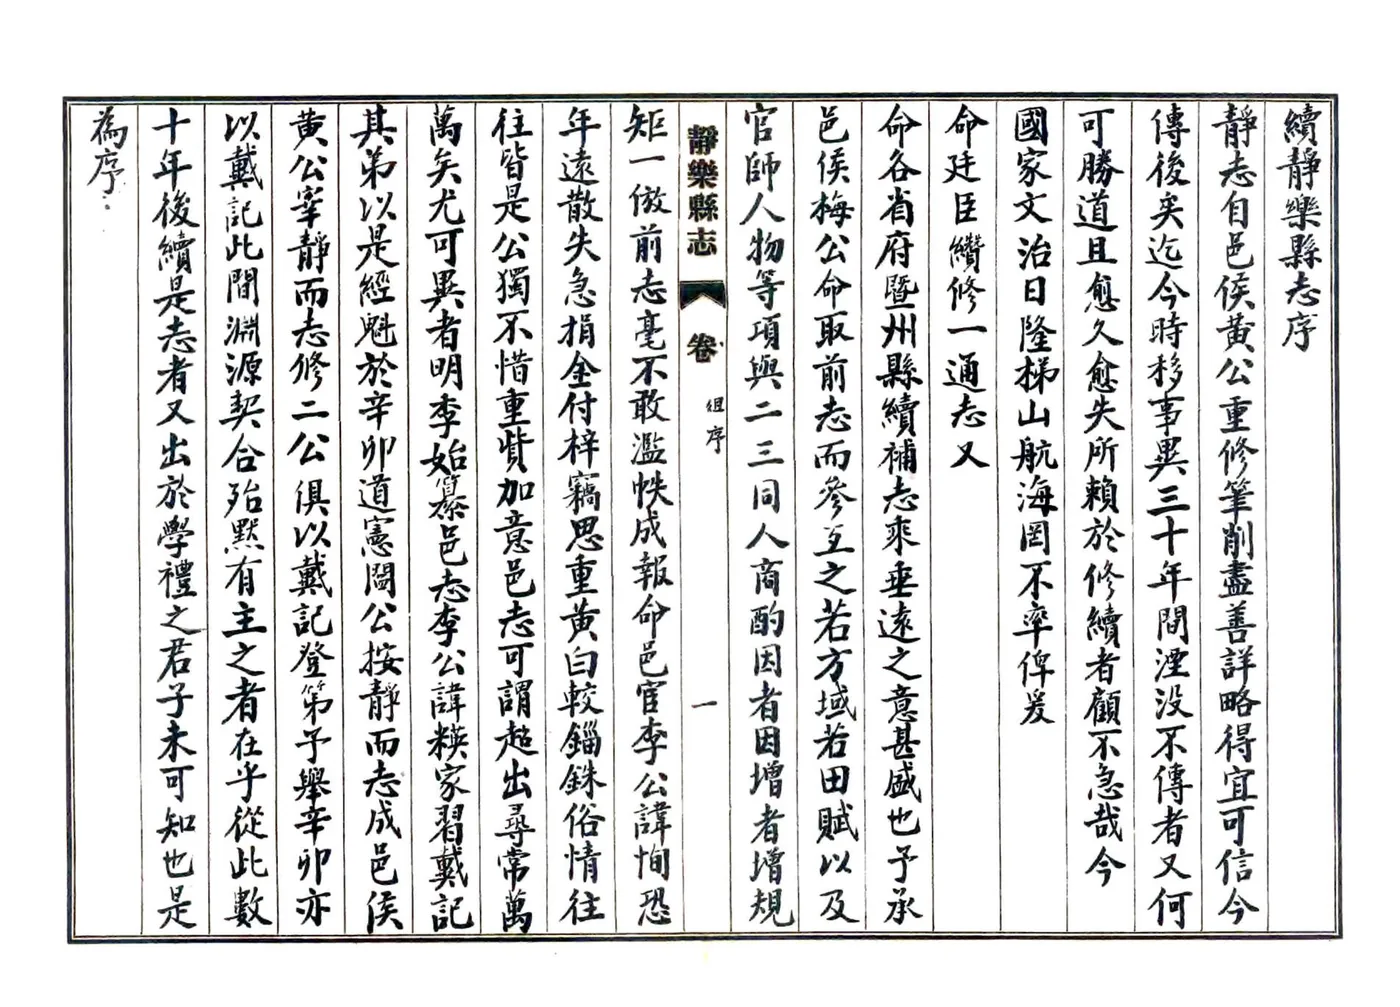 續靜樂縣志序
靜志自邑侯黃公重修筆削盡善詳略得宜可信今
傳後矣迄今時移事異三十年間湮没不傳者又何
可勝道且愈久愈失所賴於修續者顧不急哉今
國家文治日隆梯山航海罔不率俾爰
命廷臣纘修一通志又
命各省府暨州縣續補志乘垂遠之意甚盛也予承
邑侯梅公命取前志而參互之若方域若田賦以及
官師人物等項與二三同人商酌因者因增者增規
靜樂縣志
卷
俎序
一
矩一倣前志毫不敢濫帙成報命邑宦李公諱恂恐
年遠散失急捐金付梓竊思重黃白較錙銖俗情往
往皆是公獨不惜重貲加意邑志可謂超出尋常萬
萬矣尤可異者明李始纂邑志李公諱糗家習戴記
其弟以是經魁於辛卯道憲閻公按靜而志成邑侯
黃公宰靜而志修二公俱以戴記登第予舉辛卯亦
以戴記此間淵源契合殆默有主之者在乎從此數
十年後續是志者又出於學禮之君子未可知也是
為序